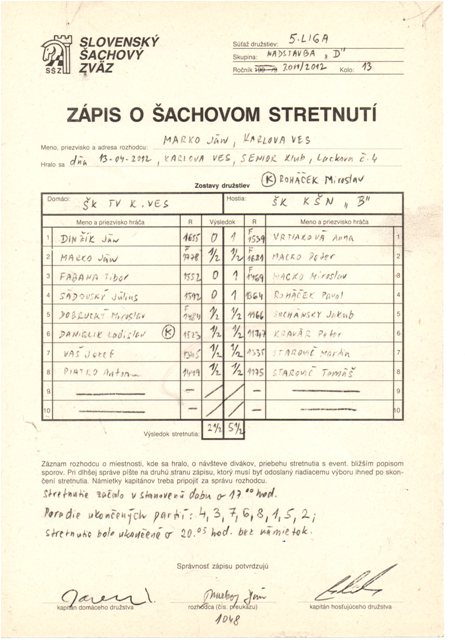 SLOVENSKÝ
ŠACHOVÝ
ZVÄZ
SŠZ
Súťaž družstiev: 5. LIGA
Skupina: NADSTAVBA „D"
Ročník 2011/2012 Kolo: 13
ZÁPIS O ŠACHOVOM STRETNUTÍ
Meno, priezvisko a adresa rozhodcu: MARKO Ján, KARLOVA VES
Hralo sa dňa 13-04-2012, KARLOVA VES, SENIOR Klub, Lackova č.4
Zostavy družstiev
K ROHÁČEK Miroslav
Domáci: ŠK TV K. VES Hostia: ŠK KŠN „B"
Meno a priezvisko hráča R Výsledok R Meno a priezvisko hráča
1 Ján 1655 0 1 F 1539 Anna
2 MARKO Ján F ½ ½ F MACKO Peter
3 FABANA Tibor 1552 0 1 F MACKO Miroslav
4 SÁDOVSKÝ Július 0 1 1564 ROHÁČEK Pavol
5 DOBRUCKÝ Miroslav F ½ ½ SUCHÁNSKY Jakub
6 DANGLIK Ladislav K ½ ½ KRAVÁR Peter
7 VAŠ Jozef ½ ½ STAROVIČ Martin
8 PIATKO Anton ½ ½ STAROVIČ Tomáš
9 — —
10 — —
Výsledok stretnutia: 2½ 5½
Záznam rozhodcu o miestnosti, kde sa hralo, o návšteve divákov, priebehu stretnutia s event. bližším popisom
sporov. Pri dlhšej správe píšte na druhú stranu zápisu, ktorý musí byť odoslaný riadiacemu výboru ihneď po skon-
čení stretnutia. Námietky kapitánov treba pripojiť za správu rozhodcu.
Stretnutie začalo v stanovenú dobu o 17⁰⁰ hod.
Poradie ukončených partií: 4, 3, 7, 6, 8, 1, 5, 2;
Stretnutie bolo ukončené o 20.05 hod. bez námietok.
Správnosť zápisu potvrdzujú
kapitán domáceho družstva rozhodca (čís. preukazu) kapitán hosťujúceho družstva
1048